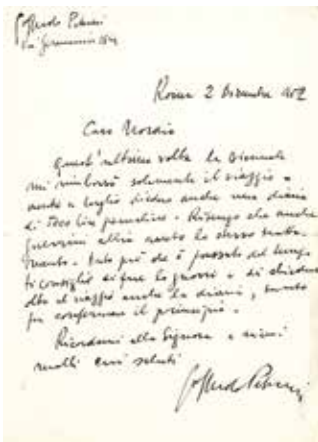 Goffredo Petrassi
Via Germanico 184
Roma 2 Dicembre
Caro Nordio
Quest'ultima volta la Biennale
mi rimborsò solamente il viaggio e
a luglio diedero anche una diaria
di lire giornaliere. Ritengo che anche
abbia avuto lo stesso tratta-
mento.
ti consiglio di fare lo gnorri e di chiedere
oltre il viaggio anche la diaria, tanto
per confermare il principio.
Ricordami alla Signora e ricevi
molti cari saluti
Goffredo Petrassi